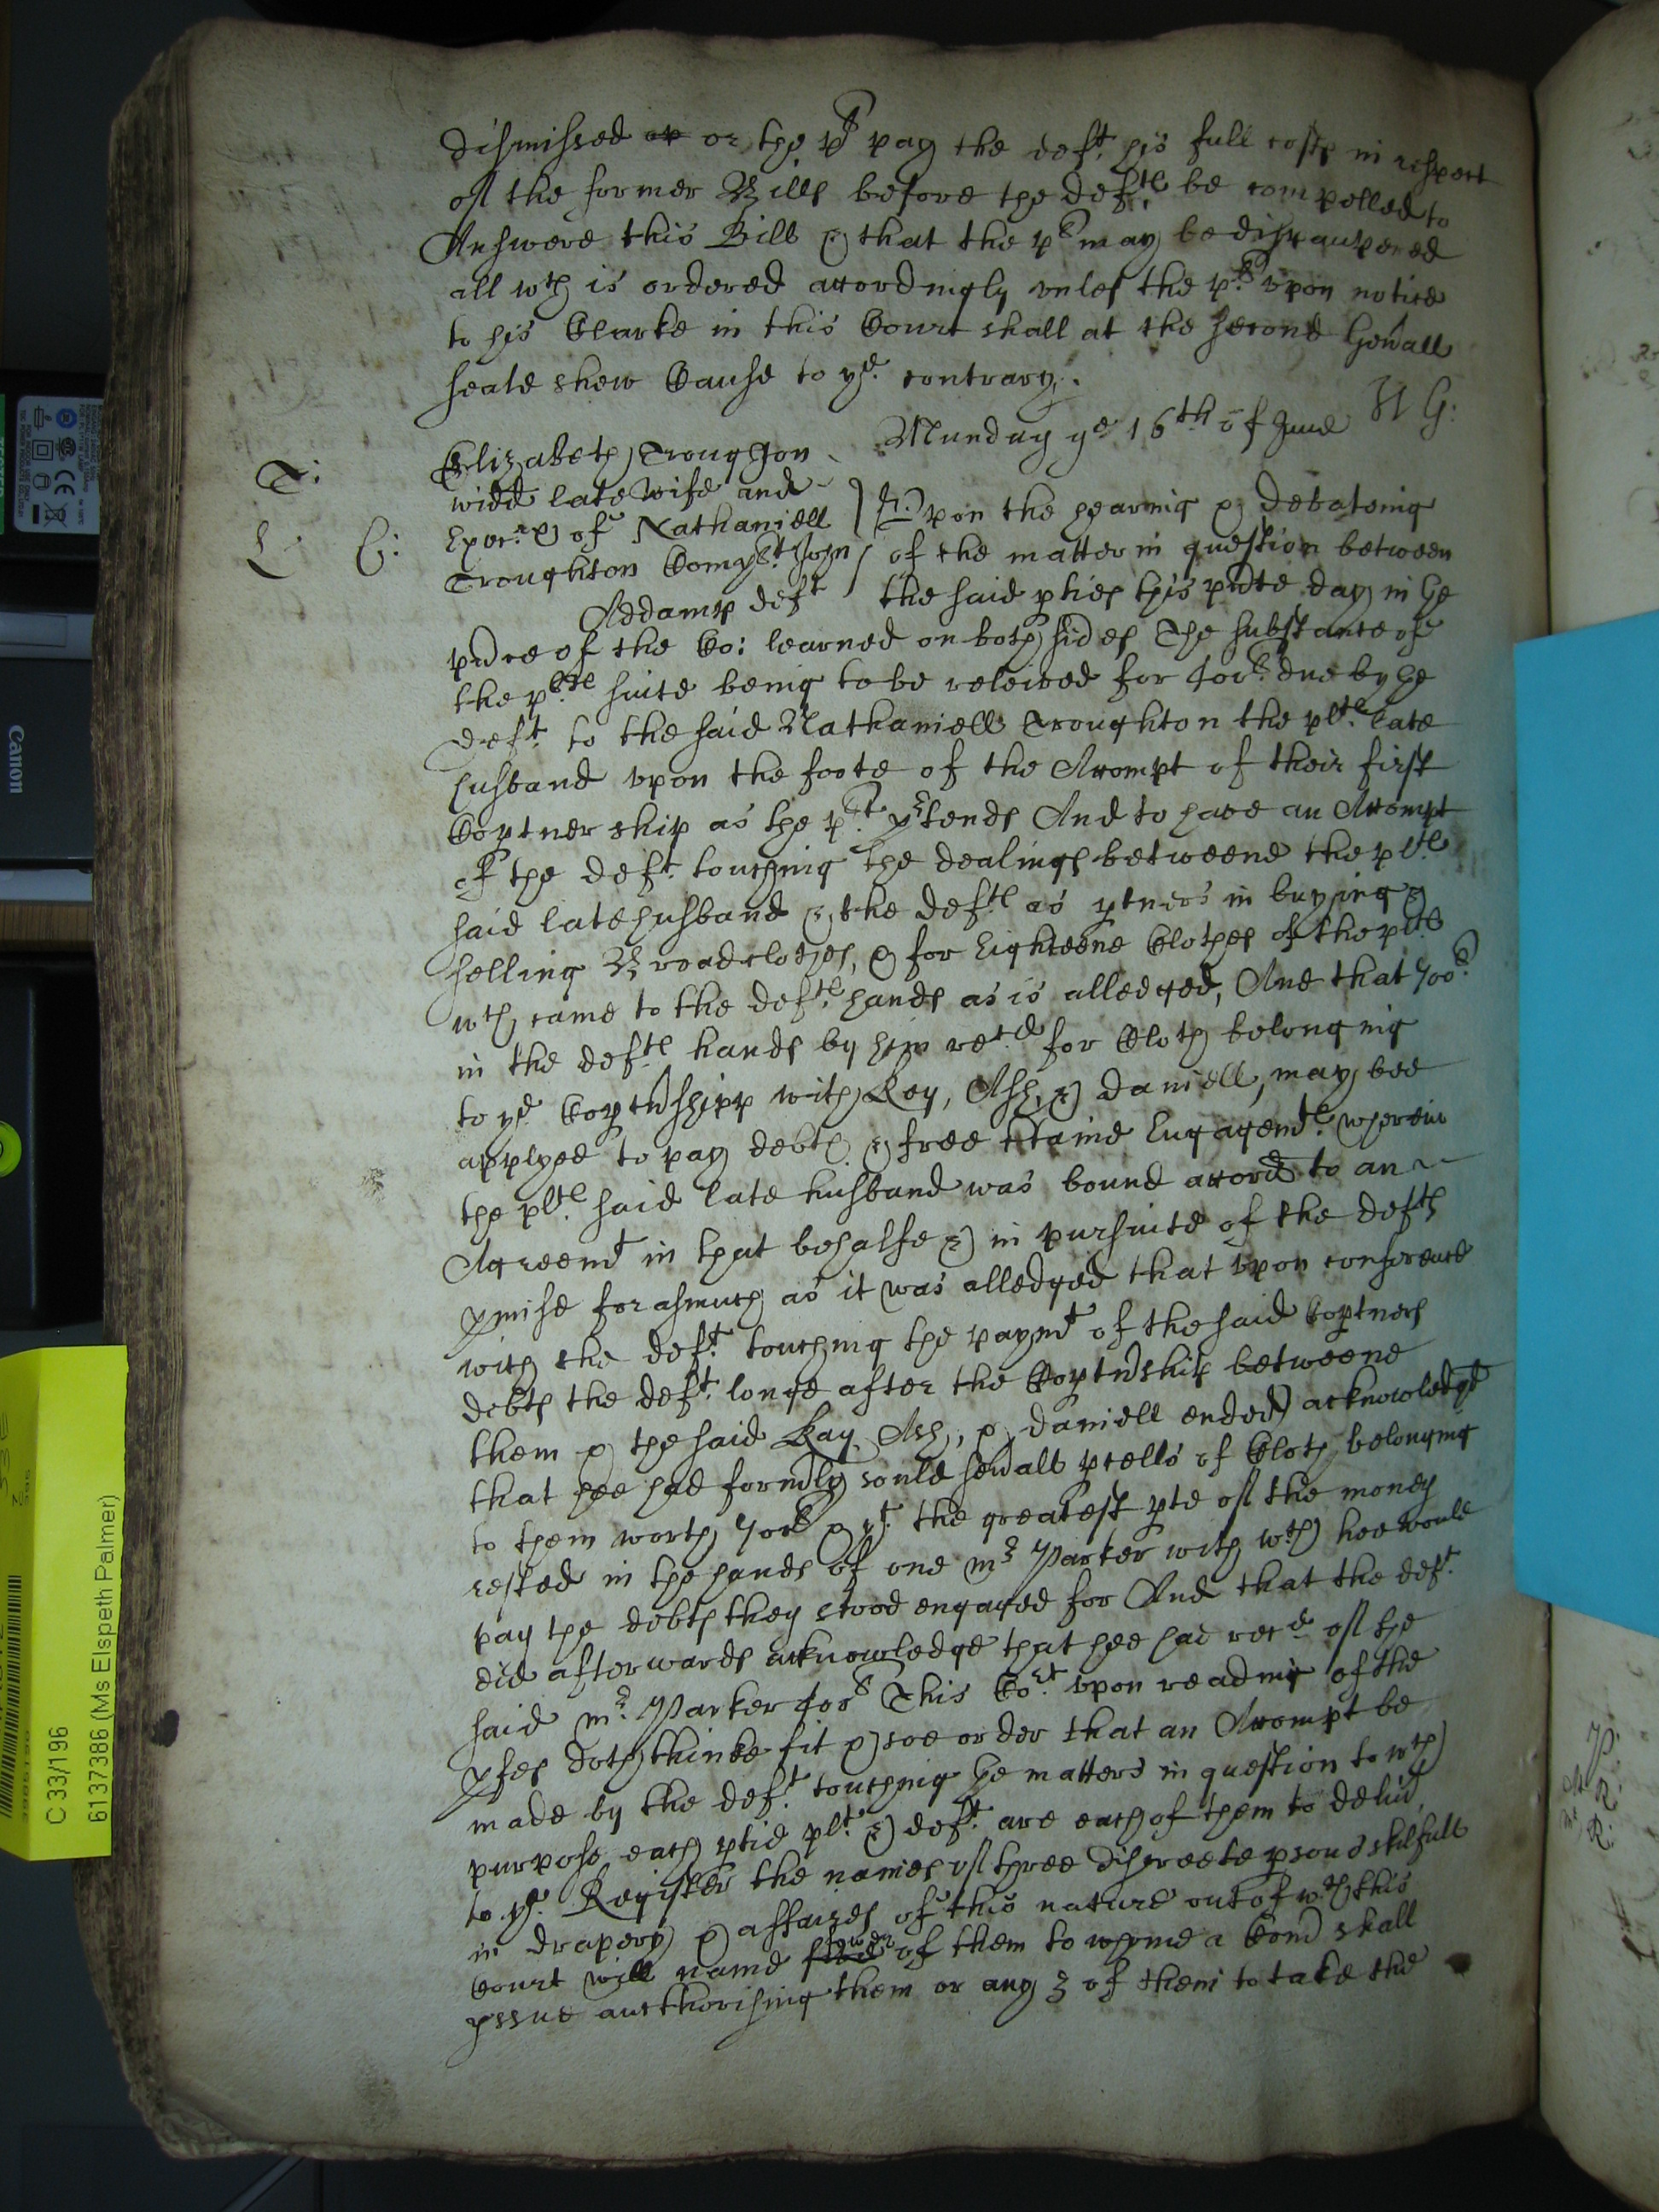 dismissed or the plt pay the deft. his full costs in respect
of the former Bills before the defte be compelled to
Answere this Bill & that the plt may be dispaupered
all wch is ordered accordingly unles the plt. upon notice
to his Clarke in this Court shall at the second Gen'all
seale shew Cause to ye. contrary.
Munday ye 16th of June
T:
L C:
Elizabeth Troughton
widd late wife and
Execrx of Nathaniell
Troughton Complt. John
Addams deft
Upon the hearing & debateing
of the matter in question between
the said pties this pnte day in ye
pnce of the Co: learned on both sides The substance of
the plts suite being to be releived for 400l. due by ye
deft. to the said Nathaniell Troughton the plts. late
husband upon the foote of the Accompt of their first
Coptnership as the plt. ptends And to have an Accompt
of the deft. touching the dealings betweene the plts.
said late husband & the defte as ptners in buying &
selling Broadclothes, & for Eighteene Clothes of the plts
wch came to the defts hands as is alledged, And that 700l.
in the defts hands by him recd for Cloth belonging
to ye Coptnshipp with Key, Ash, & Daniell, may bee
applyed to pay debts & free ctaine Engagemts. wherein
the plts. said late husband was bound accord to an
Agreemt in that behalfe & in pursuite of the defts
pmise forasmuch as it was alledged that upon conference
with the deft. touching the paymt of the said Coptners
debts the deft. longe after the Coptnship betweene
them & the said Kay, Ash, & Daniell ended acknowledgd
that hee had formly sould sevall pcells of Cloth belonging
to them worth 700l & yt. the greatest pte of the money
rested in the hands of one mr Parker with wch hee would
pay the debts they stood engaged for And that the deft.
did afterwards acknowledge that hee had recd of the
said mr. Parker 400l This Cort. upon reading of the
pfes doth thinke fit & soe order that an Accompt be
made by the deft. touching ye matters in question to wch
purpose each ptie plt. & deft. are each of them to deliv
to ye. Register the names of three discreete psons skilfull
in drapery & affaires of this nature out of wch this
Court will name fower of them to whome a Comn shall
yssue aucthorising them or any 3 of them to take the
Canon
C 33/196
6137386 (Ms Elspeth Palmer)